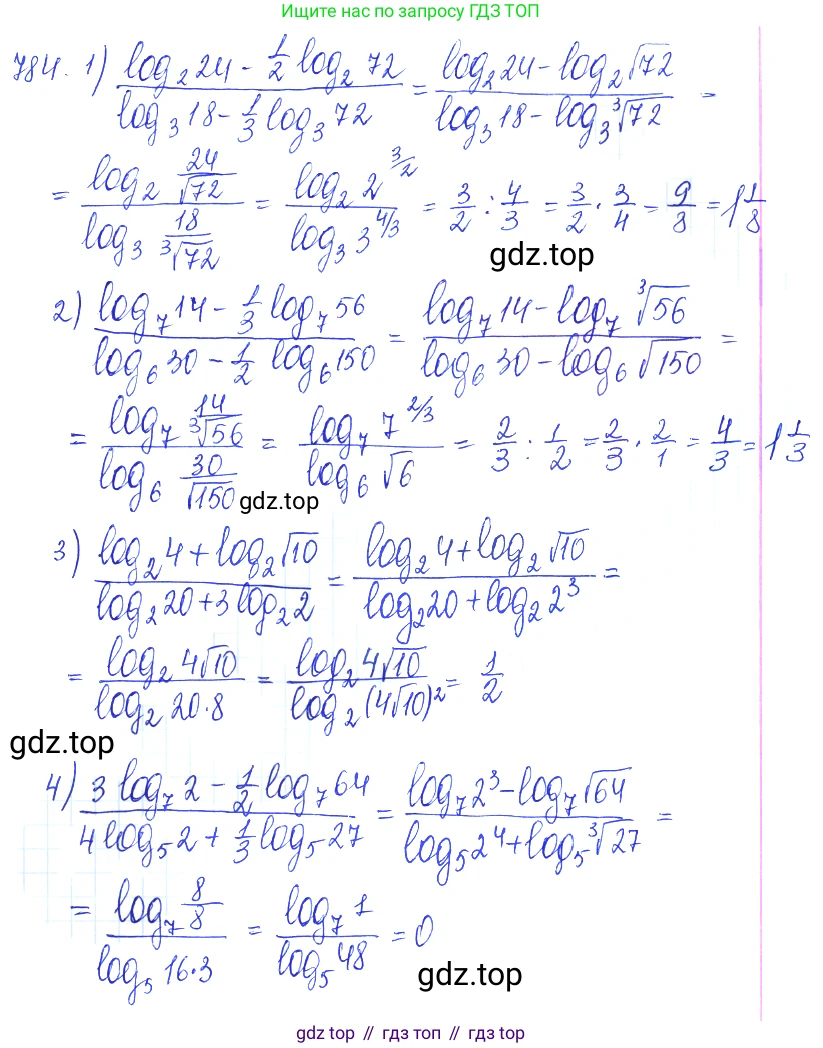 Ищите нас по запросу ГДЗ ТОП
784. 1) (log₂24 - 1/2 log₂ 72)/(log₃18 - 1/3 log₃ 72) = (log₂24 - log₂√72)/(log₃18 - log₃∛72) =
= (log₂ 24/√72)/(log₃ 18/∛72) = (log₂ 2^(3/2))/(log₃ 3^(4/3)) = 3/2 : 4/3 = 3/2 · 3/4 = 9/8 = 1 1/8
gdz.top
2) (log₇14 - 1/3 log₇56)/(log₆30 - 1/2 log₆150) = (log₇14 - log₇ ∛56)/(log₆30 - log₆√150) =
= (log₇ 14/∛56)/(log₆ 30/√150) = (log₇ 7^(2/3))/(log₆ √6) = 2/3 : 1/2 = 2/3 · 2/1 = 4/3 = 1 1/3
gdz.top
3) (log₂4 + log₂√10)/(log₂20 + 3log₂2) = (log₂4 + log₂√10)/(log₂20 + log₂2³) =
= (log₂4√10)/(log₂20·8) = (log₂4√10)/(log₂(4√10)²) = 1/2
gdz.top
4) (3log₇2 - 1/2 log₇64)/(4log₅2 + 1/3 log₅27) = (log₇2³ - log₇√64)/(log₅2⁴ + log₅∛27) =
= (log₇ 8/8)/(log₅16·3) = (log₇1)/(log₅48) = 0
gdz.top
gdz top // гдз топ // гдз топ // gdz top